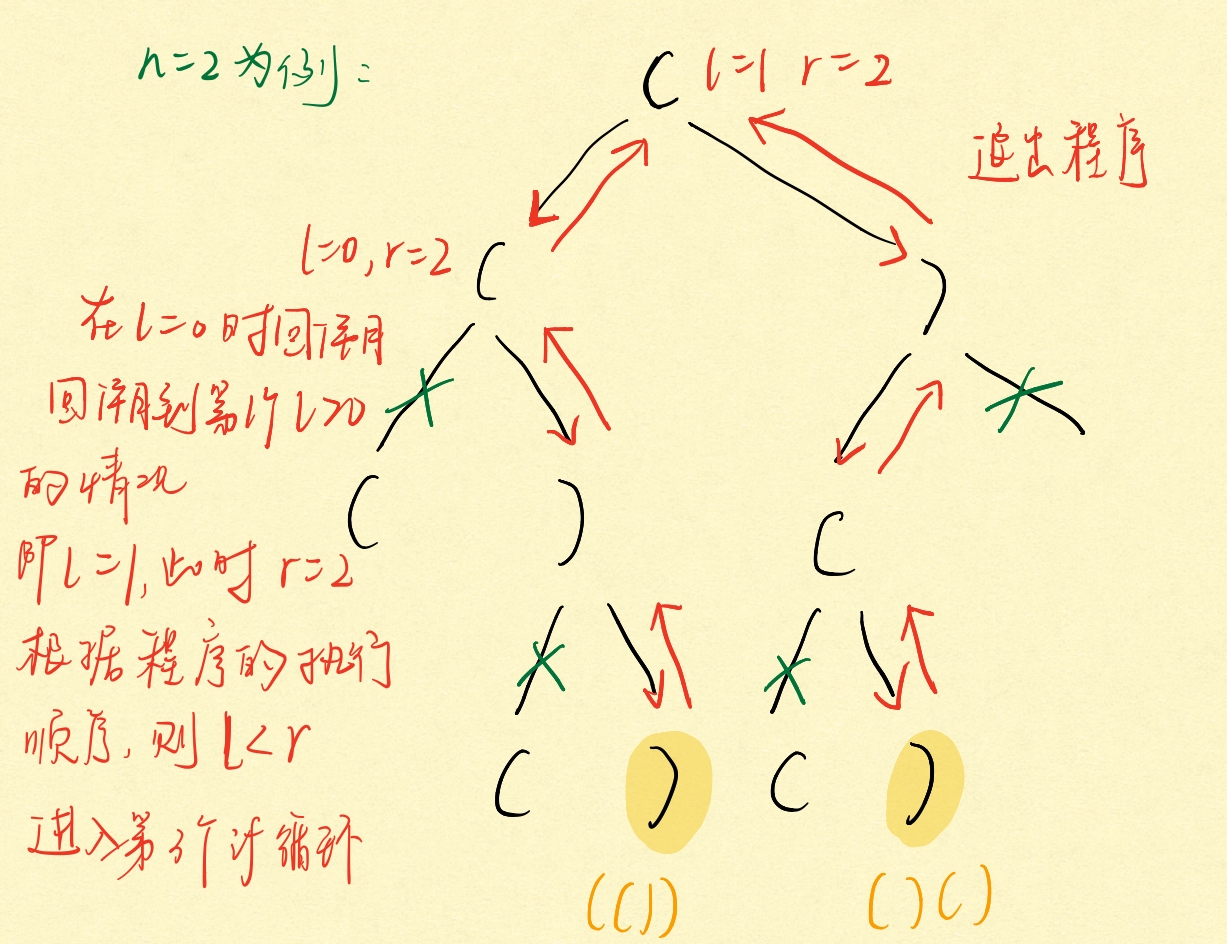 n=2为例：
( l=1 r=2
退出程序
l=0,r=2 (
)
在l=0时回溯
回溯到第1个l>0
的情况
( ) (
即l=1,此时 r=2
根据程序的执行
顺序,则 l<r
( ) ( )
进入第3个if循环
(()) ()()